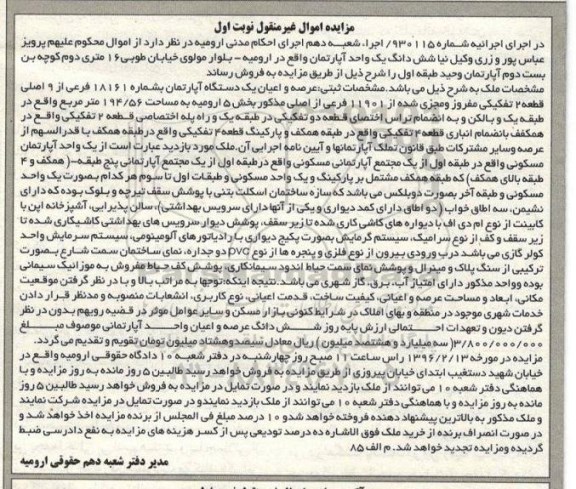 مزایده اموال غیرمنقول نوبت اول
در اجرای اجرائیه شماره ۹۳۰۱۱۵/ اجرا، شعبه دهم اجرای احکام مدنی ارومیه در نظر دارد از اموال محکوم علیهم پرویز
عباس پور و زری وکیل نیا شش دانگ یک واحد آپارتمان واقع در ارومیه - بلوار مولوی خیابان طوبی ۱۶ متری دوم کوچه بن
بست دوم آپارتمان وحید طبقه اول را شرح ذیل از طریق مزایده به فروش رساند
مشخصات ملک به شرح ذیل می باشد.مشخصات ثبتی:عرصه و اعیان یک دستگاه آپارتمان بشماره ۱۸۱۶۱ فرعی از ۹ اصلی
قطعه ۲ تفکیکی مفروز ومجزی شده از ۱۱۹۰۱ فرعی از اصلی مذکور بخش ۵ ارومیه به مساحت ۱۹۴/۵۶ متر مربع واقع در
طبقه یک و بالکن و به انضمام تراس اختصای قطعه دو تفکیکی در طبقه یک و راه پله اختصاصی قطعه ۲ تفکیکی واقع در
همکفف بانضمام انباری قطعه ۴ تفکیکی واقع در طبقه همکف و پارکینگ قطعه ۴ تفکیکی واقع در طبقه همکف با قدرالسهم از
عرصه وسایر مشترکات طبق قانون تملک آپارتمانها و آیین نامه اجرایی آن.ملک مورد بازدید عبارت است از یک واحد آپارتمان
مسکونی واقع در طبقه اول از یک مجتمع آپارتمانی مسکونی واقع در طبقه اول از یک مجتمع آپارتمانی پنج طبقه-( همکف و ۴
طبقه بالای همکف) که طبقه همکف مشتمل بر پارکینگ و یک واحد مسکونی و طبقات اول تا سوم هر کدام بصورت یک واحد
مسکونی و طبقه آخر بصورت دوبلکس می باشد که سازه ساختمان اسکلت بتنی با پوشش سقف تیرچه و بلوک بوده که دارای
نشیمن، سه اطاق خواب ( دو اطاق دارای کمد دیواری و یکی از آنها دارای سرویس بهداشتی)، سالن پذیرایی، آشپزخانه اپن با
کابینت از نوع ام دی اف با دیواره های کاشی کاری شده تا زیر سقف، پوشش دیوار سرویس های بهداشتی کاشیکاری شده تا
زیر سقف و کف از نوع سرامیک، سیستم گرمایش بصورت پکیج دیواری با رادیاتور های آلومینومی، سیستم سرمایش واحد
کولر گازی می باشد درب ورودی بیرون از نوع فلزی و پنجره ها از نوع pvc دو جداره، نمای ساختمان سمت شارع بصورت
ترکیبی از سنگ پلاک و مینرال و پوشش نمای سمت حیاط اندود سیمانکاری، پوشش کف حیاط مفروش به موزائیک سیمانی
بوده وواحد مذکور دارای امتیاز آب، برق، گاز شهری می باشد. نتیجه اینکه:توجها به مراتب بالا و با در نظر گرفتن موقعیت
مکانی، ابعاد و مساحت عرصه و اعیانی، کیفیت ساخت، قدمت اعیانی، نوع کاربری، انشعابات منصوبه و مدنظر قرار دادن
خدمات شهری موجود در منطقه و بهای املاک در شرایط کنونی بازار مسکن و سایر عوامل موثر در قضیه رویهم بدون در نظر
گرفتن دیون و تعهدات احتمالی ارزش پایه روز شش دانگ عرصه و اعیان واحد آپارتمانی موصوف مبلغ
۳/۸۰۰/۰۰۰/۰۰۰( سه میلیارد و هشتصد میلیون) ریال معادل سیصد وهشتاد میلیون تومان تقویم و تقدیم می گردد.
مزایده در مورخه ۱۳۹۶/۲/۱۳ راس ساعت ۱۱ صبح روز چهارشنبه در دفتر شعبه ۱۰ دادگاه حقوقی ارومیه واقع در
خیابان شهید دستغیب ابتدای خیابان پیروزی از طریق مزایده به فروش خواهد رسید طالبین ۵ روز مانده به روز مزایده و با
هماهنگی دفتر شعبه ۱۰ می توانند از ملک بازدید نمایند و در صورت تمایل در مزایده به فروش خواهد رسید طالبین ۵ روز
مانده به روز مزایده و با هماهنگی دفتر شعبه ۱۰ می توانند از ملک بازدید نمایندو در صورت تمایل در مزایده شرکت نمایند
و ملک مذکور به بالاترین پیشنهاد دهنده فروخته خواهد شدو ۱۰ درصد مبلغ فی المجلس از برنده مزایده اخذ خواهد شد و
در صورت انصراف برنده از خرید ملک فوق الاشاره ده درصد تودیعی پس از کسر هزینه های مزایده به نفع دادرسی ضبط
گردیده ومزایده تجدید خواهد شد. م الف ۸۵
مدیر دفتر شعبه دهم حقوقی ارومیه